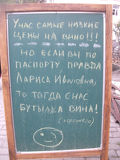 У нас самые низкие
цены на вино!!!
Но если вы по
паспорту правда
Лариса Ивановна,
то тогда с нас
бутылка вина!